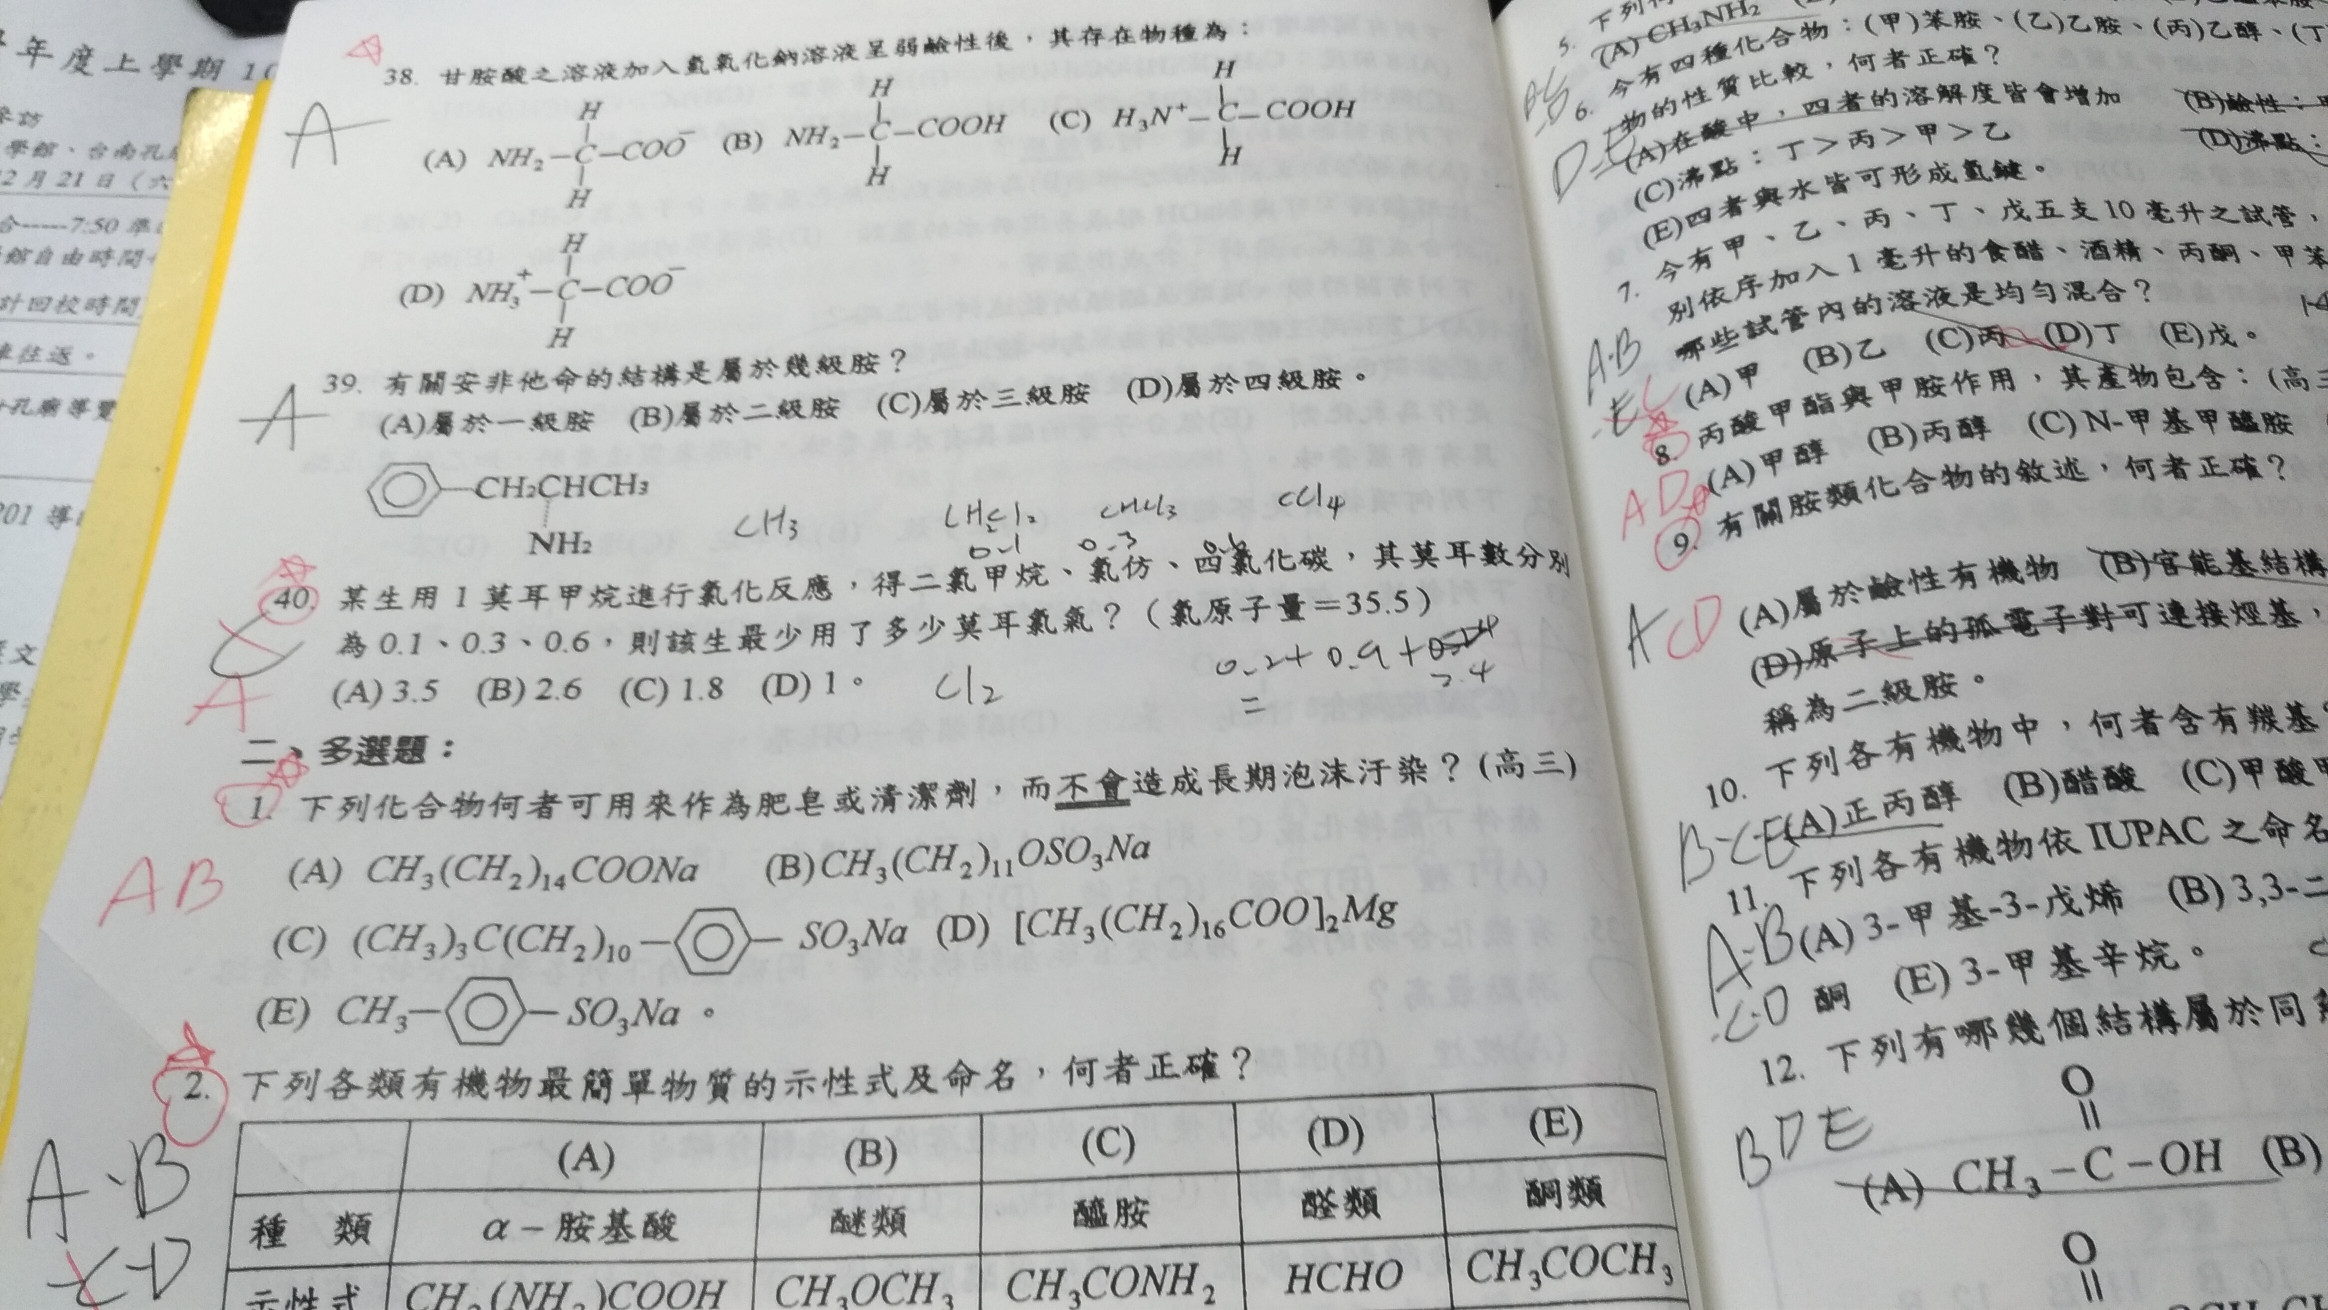 年度上學期10
學館、台南孔
2月21日(六
合-----7:50 準
館自由時間
計回校時間
車往返。
孔廟導覽
201 導
38. 甘胺酸之溶液加入氫氧化鈉溶液呈弱鹼性後,其存在物種為:
A
H H H
(A) NH₂-C-COO⁻ (B) NH₂-C-COOH (C) H₃N⁺-C-COOH
H H H
H
(D) NH₃⁺-C-COO⁻
H
39. 有關安非他命的結構是屬於幾級胺?
A
(A)屬於一級胺 (B)屬於二級胺 (C)屬於三級胺 (D)屬於四級胺。
CH₂CHCH₃
NH₂
CH₃ CH₂Cl₂ CHCl₃ CCl₄
0.1 0.3
40. 某生用 1 莫耳甲烷進行氯化反應,得二氯甲烷、氯仿、四氯化碳,其莫耳數分別
為 0.1、0.3、0.6,則該生最少用了多少莫耳氯氣?(氯原子量=35.5)
C
0.2+0.9+
2.4
=
A
(A) 3.5 (B) 2.6 (C) 1.8 (D) 1。
Cl₂
二、多選題:
1. 下列化合物何者可用來作為肥皂或清潔劑,而不會造成長期泡沫汙染?(高三)
AB
(A) CH₃(CH₂)₁₄COONa (B) CH₃(CH₂)₁₁OSO₃Na
(C) (CH₃)₃C(CH₂)₁₀- -SO₃Na (D) [CH₃(CH₂)₁₆COO]₂Mg
(E) CH₃- -SO₃Na。
2. 下列各類有機物最簡單物質的示性式及命名,何者正確?
A.B
C.D
(A) (B) (C) (D) (E)
種 類 α-胺基酸 醚類 醯胺 醛類 酮類
示性式 CH₂(NH₂)COOH CH₃OCH₃ CH₃CONH₂ HCHO CH₃COCH₃
5. 下列
(A) CH₃NH₂
6. 今有四種化合物:(甲)苯胺、(乙)乙胺、(丙)乙醇、(丁
物的性質比較,何者正確?
D.E
(A)在酸中,四者的溶解度皆會增加 (B)鹼性:
(C)沸點:丁>丙>甲>乙 (D)沸點:
(E)四者與水皆可形成氫鍵。
7. 今有甲、乙、丙、丁、戊五支 10 毫升之試管,
別依序加入 1 毫升的食醋、酒精、丙酮、甲苯
哪些試管內的溶液是均勻混合?
A.B
E C
(A)甲 (B)乙 (C)丙 (D)丁 (E)戊。
8. 丙酸甲酯與甲胺作用,其產物包含:(高三
AD
(A)甲醇 (B)丙醇 (C) N-甲基甲醯胺
9. 有關胺類化合物的敘述,何者正確?
A CD
(A)屬於鹼性有機物 (B)官能基結構
(D)原子上的孤電子對可連接烴基,
稱為二級胺。
10. 下列各有機物中,何者含有羰基
B.C.E
(A)正丙醇 (B)醋酸 (C)甲酸甲
11. 下列各有機物依 IUPAC 之命名
A.B
C.D
(A) 3-甲基-3-戊烯 (B) 3,3-二
酮 (E) 3-甲基辛烷。
12. 下列有哪幾個結構屬於同
BDE
O
(A) CH₃-C-OH (B)
O